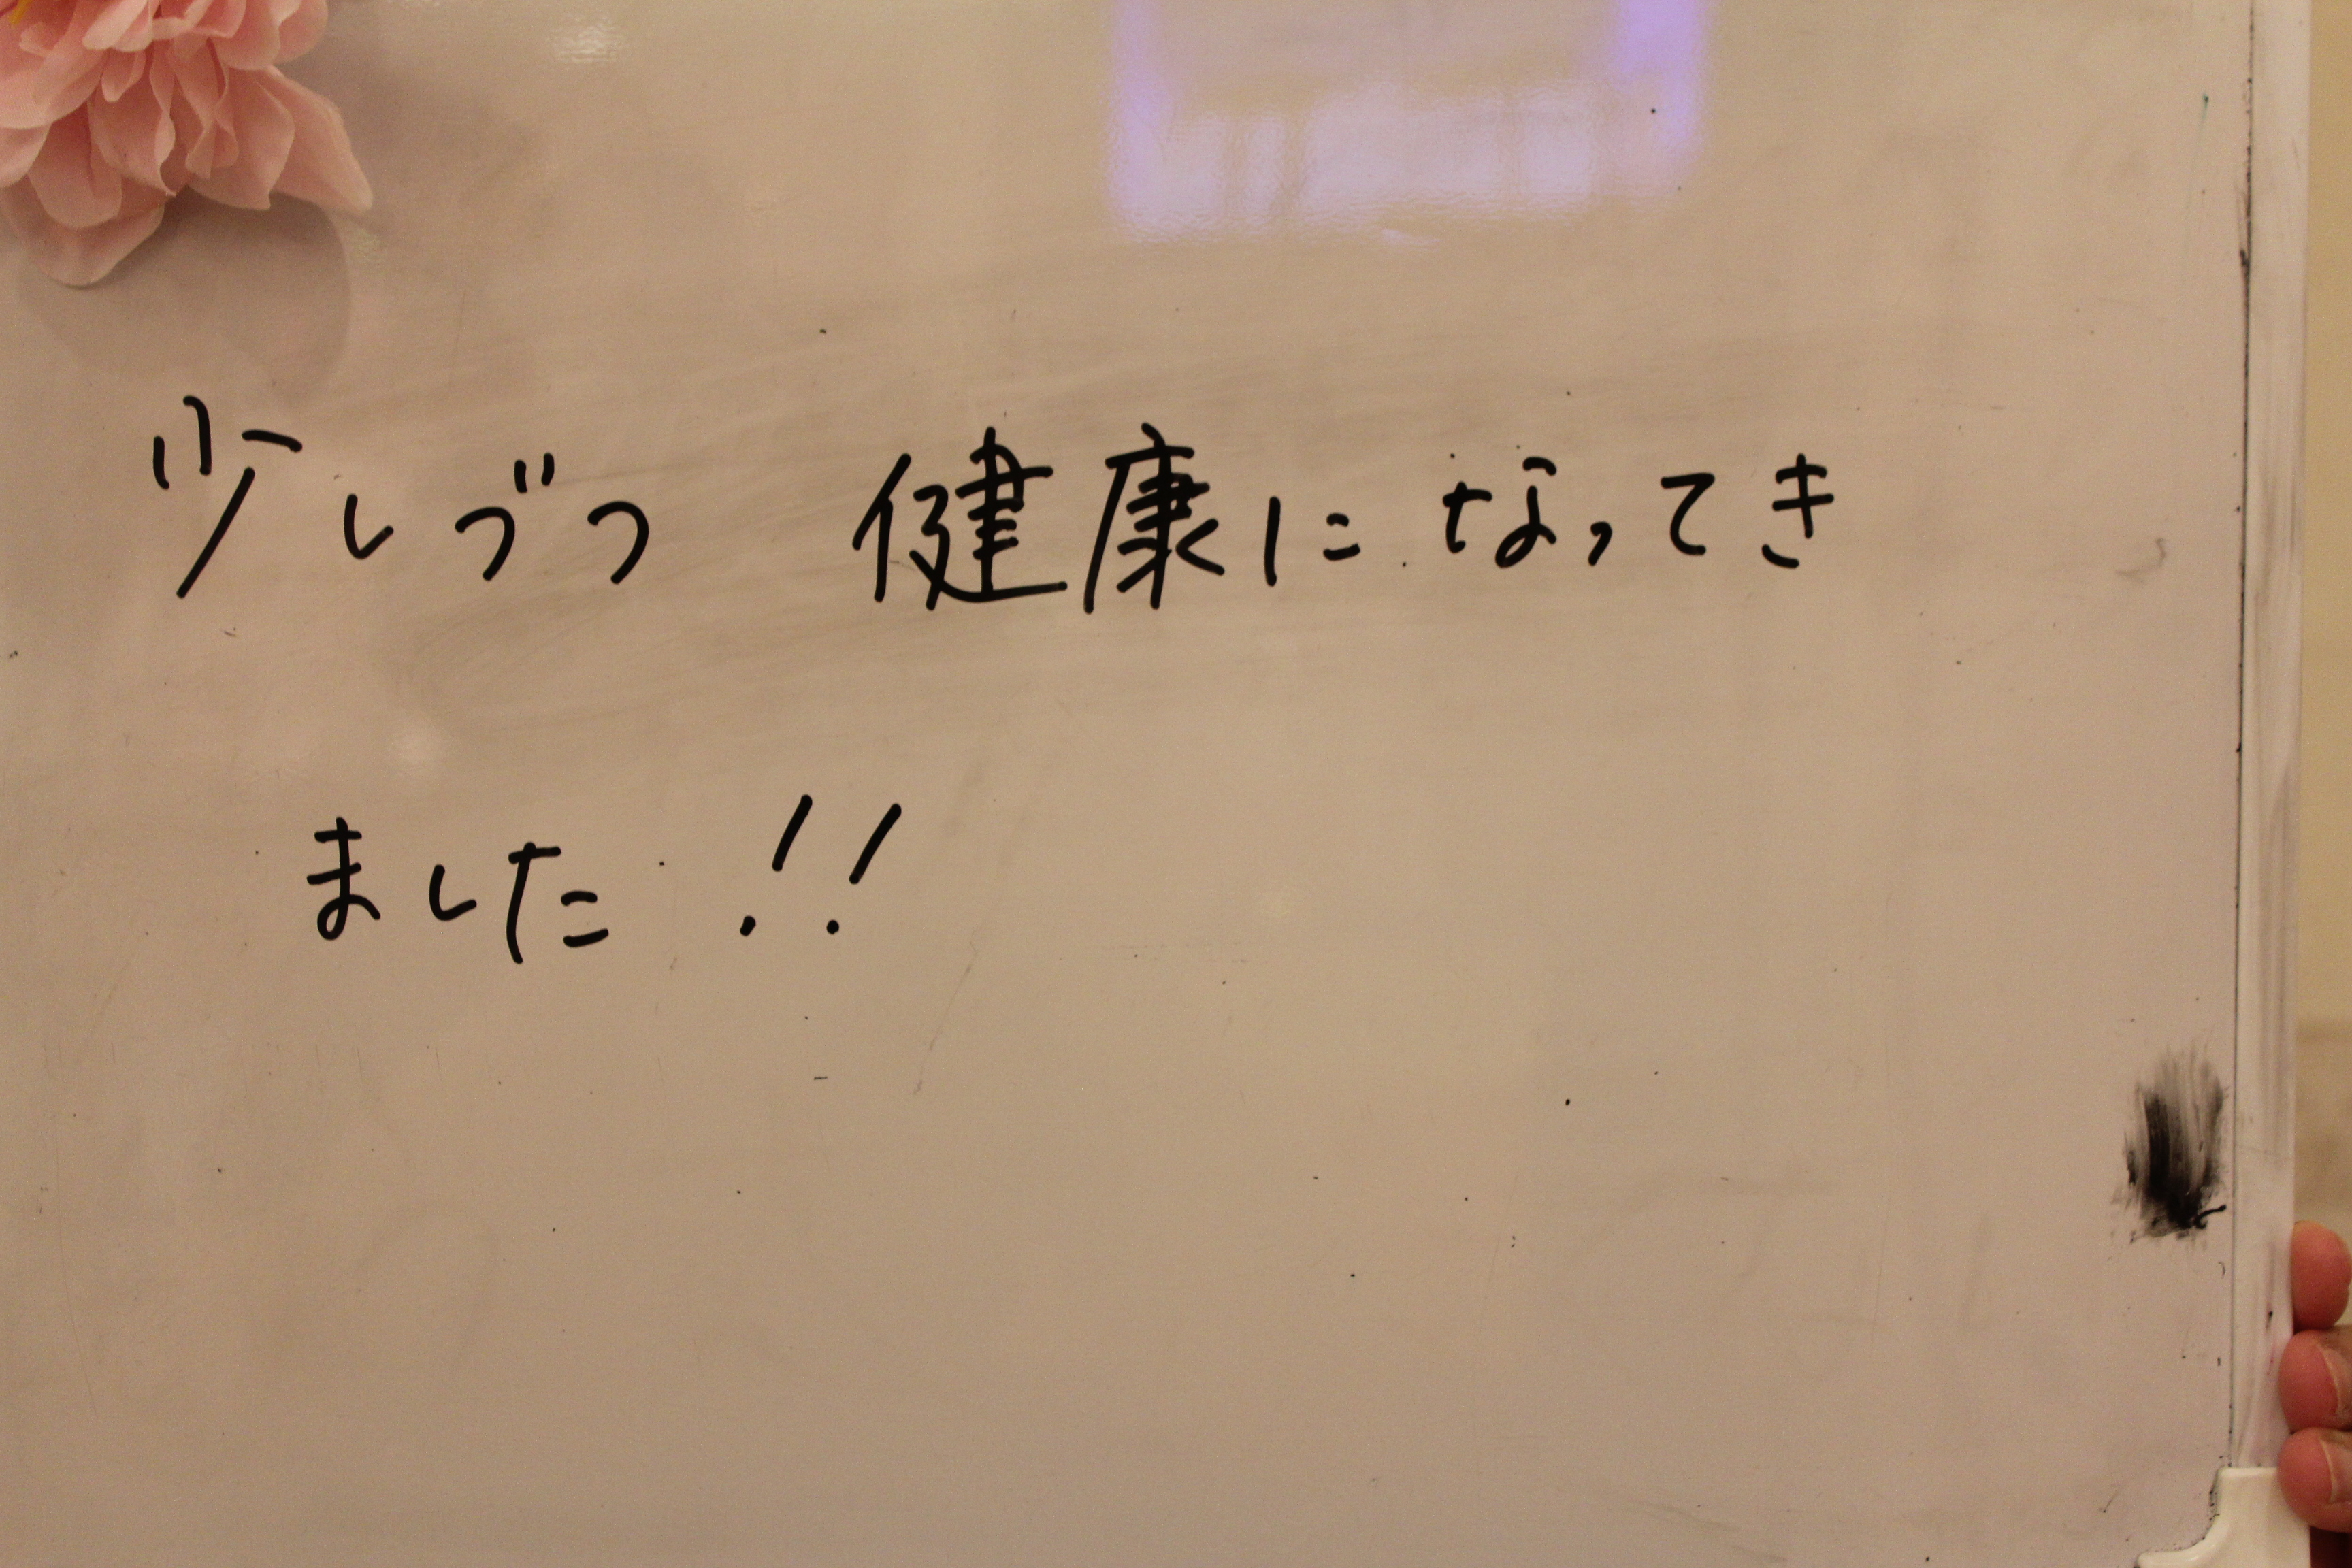 少しづつ 健康になってき
ました!!